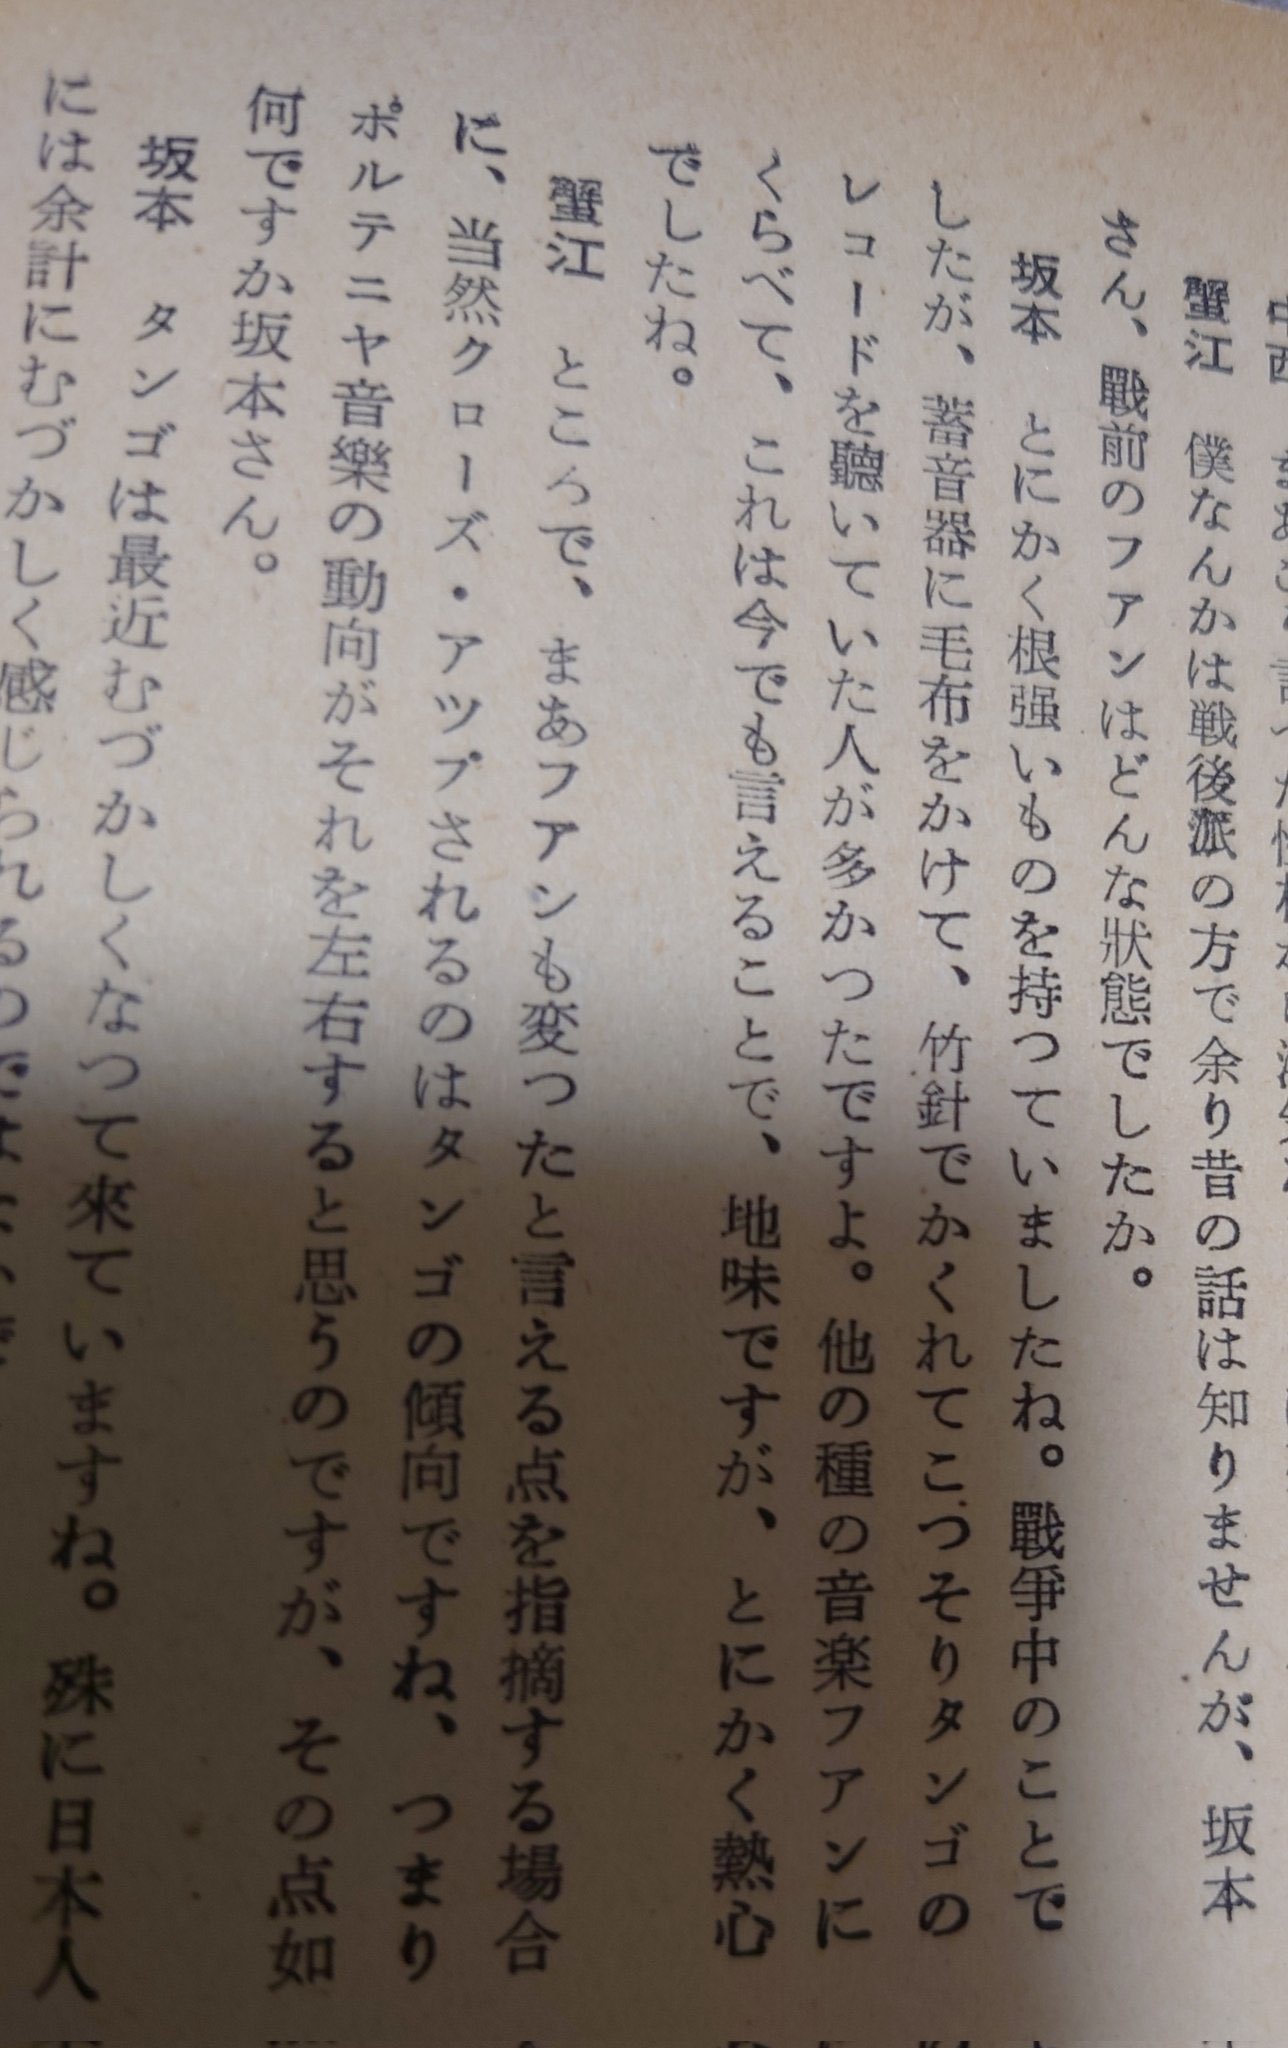 蟹江　僕なんかは戦後派の方で余り昔の話は知りませんが、坂本
さん、戰前のファンはどんな狀態でしたか。
坂本　とにかく根强いものを持つていましたね。戰爭中のことで
したが、蓄音器に毛布をかけて、竹針でかくれてこつそりタンゴの
レコードを聽いていた人が多かつたですよ。他の種の音楽フアンに
くらべて、これは今でも言えることで、地味ですが、とにかく熱心
でしたね。
蟹江　ところで、まあフアンも変つたと言える点を指摘する場合
に、当然クローズ・アツプされるのはタンゴの傾向ですね、つまり
ポルテニヤ音樂の動向がそれを左右すると思うのですが、その点如
何ですか坂本さん。
坂本　タンゴは最近むづかしくなつて來ていますね。殊に日本人
には余計にむづかしく感じられるのでは